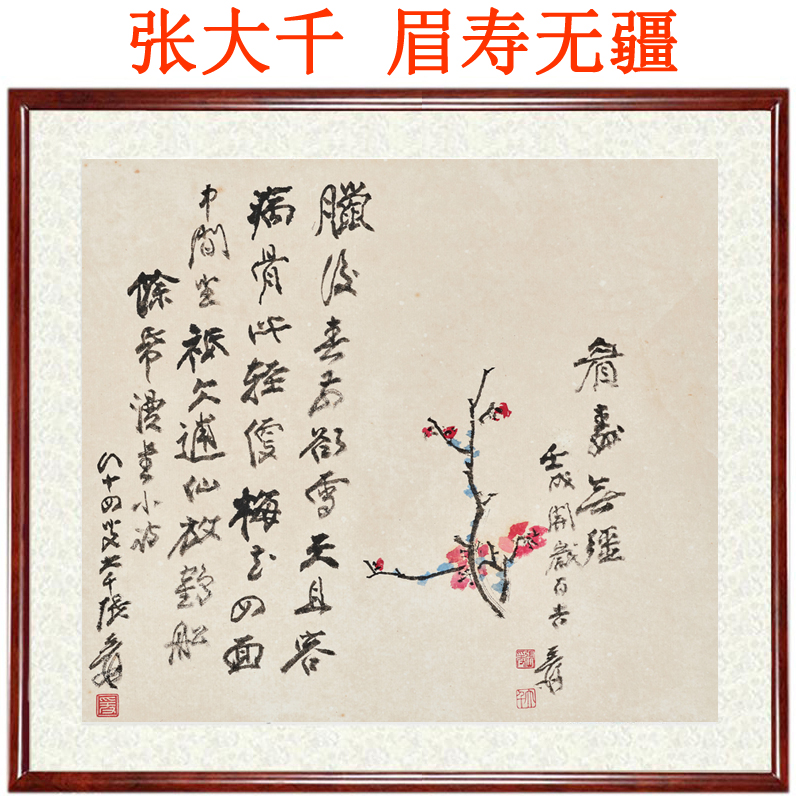 张大千 眉寿无疆
眉壽無疆
壬戌開歲百吉
爰
臘後春前欲雪天且容
病骨此輕梅花四面
中間坐祇欠逋仙放鶴船
餘帋漫書小詩
八十四叟大千張爰